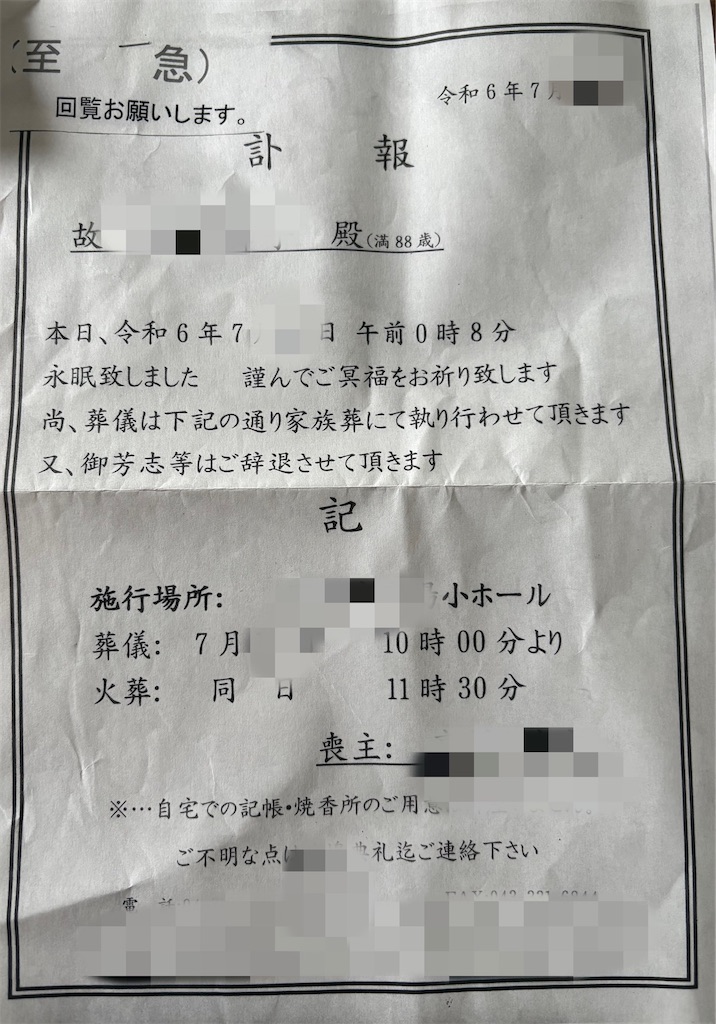 (至 急)
回覧お願いします。
令和6年7月
訃 報
故 殿(満88歳)
本日、令和6年7 日 午前0時8分
永眠致しました 謹んでご冥福をお祈り致します
尚、葬儀は下記の通り家族葬にて執り行わせて頂きます
又、御芳志等はご辞退させて頂きます
記
施行場所: 小ホール
葬儀: 7月 10時00分より
火葬: 同 日 11時30分
喪主:
※…自宅での記帳・焼香所のご用意
ご不明な点は 典礼迄ご連絡下さい
電 話